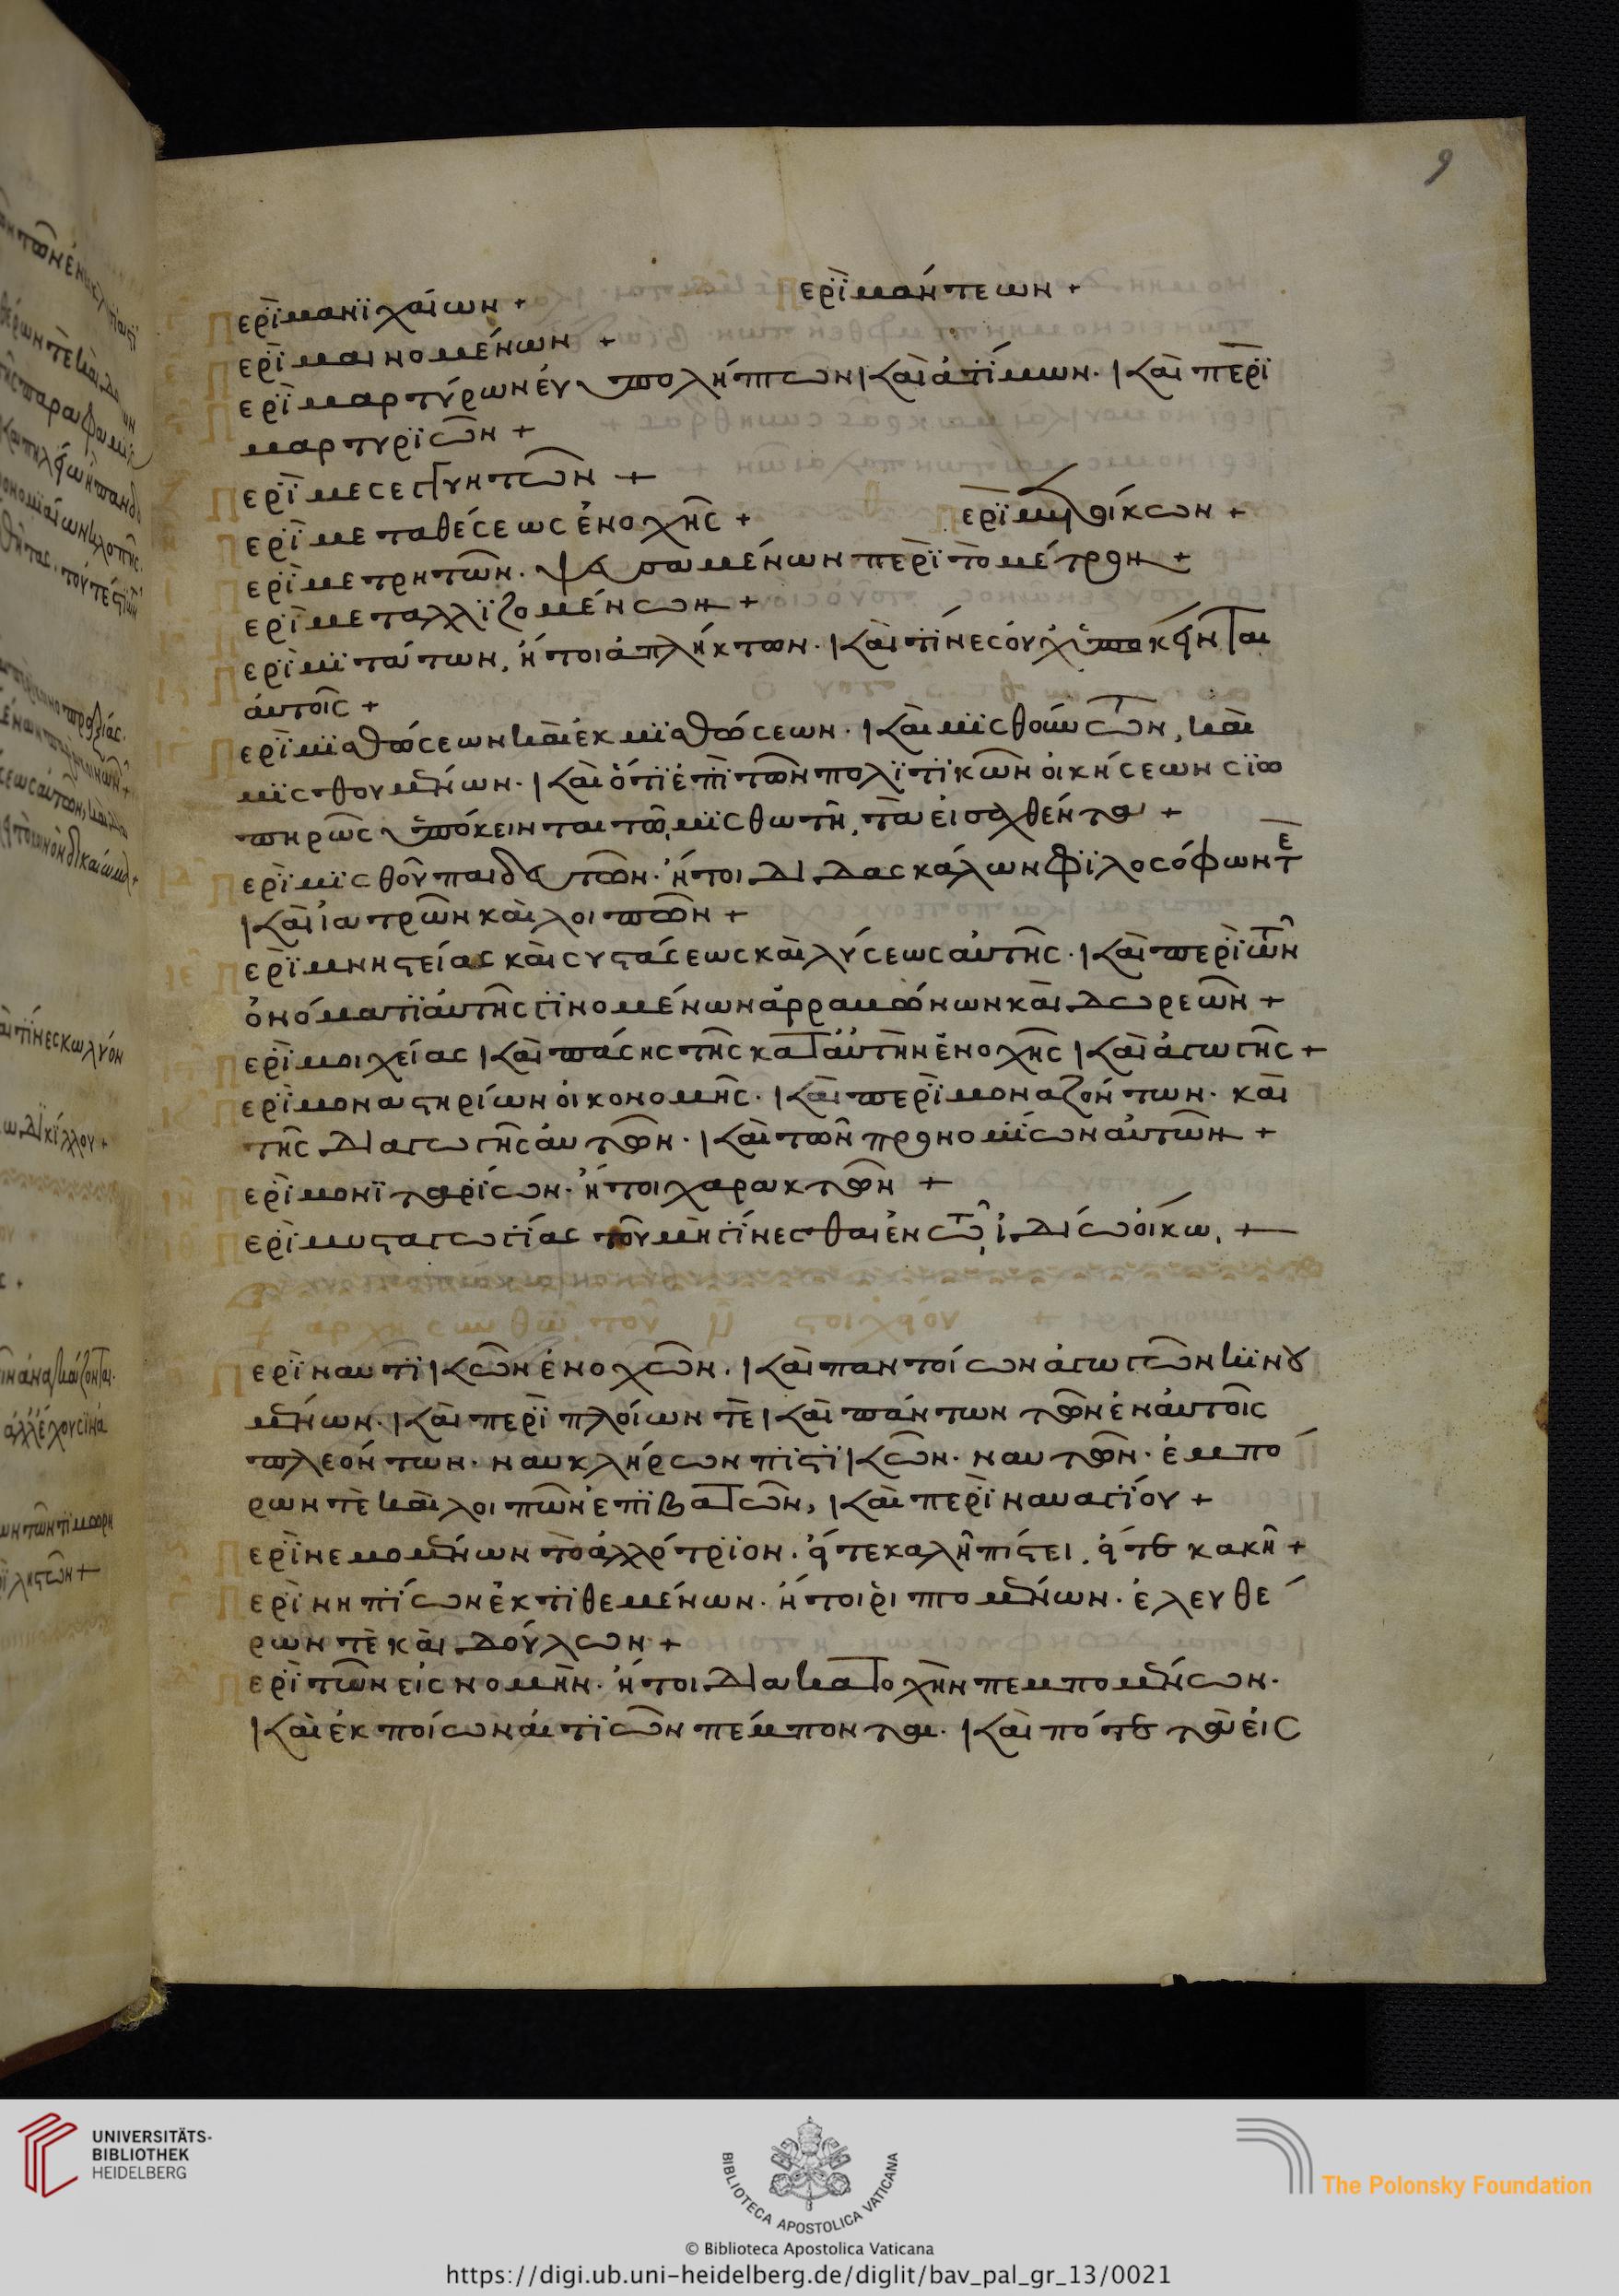 9
Περὶ μανϊχαίων + Περὶ μάντεων +
Περὶ μαινομένων +
Περὶ μαρτύρων εὐυπολήπτων καὶ ἀτίμων · καὶ περὶ
μαρτυριῶν +
Περὶ μεσεγγυητῶν +
Περὶ μεταθέσεως ἐνοχῆς + Περὶ
Περὶ μετρητῶν · ψευσαμένων περὶ τὸ μέτρον +
Περὶ μεταλλϊζομένων +
Περὶ μιτάτων, ἤτοι ἀπλήκτων · καὶ τίνες οὐχ ὑπόκεινται
αὐτοῖς +
Περὶ μισθώσεων καὶ ἐκμισθώσεων · καὶ μισθωτῶν, καὶ
μισθουμένων · καὶ ὅτι ἐπὶ τῶν πολιτικῶν οἰκήσεων σιω
πηρῶς ὑπόκεινται τῶ μισθωτῆ, τὰ εἰσαχθέντα +
Περὶ μισθοῦ παιδευτῶν · ἤτοι διδασκάλων φιλοσόφων τε
καὶ ἰατρῶν καὶ λοιπῶν +
ιε Περὶ μνηστείας καὶ συστάσεως καὶ λύσεως αὐτῆς · καὶ περὶ τῶν
ὀνόματι αὐτῆς γινομένων ἀρραβώνων καὶ δωρεῶν +
Περὶ μοιχείας καὶ πάσης τῆς κατ' αὐτὴν ἐνοχῆς καὶ ἀγωγῆς +
Περὶ μοναστηρίων οἰκονομῆς · καὶ περὶ μοναζόντων · καὶ
τῆς διαγωγῆς αὐτῶν · καὶ τῶν προνομίων αὐτῶν +
ιη Περὶ μονιταρίων · ἤτοι χαρακτῶν +
ιθ Περὶ μυσταγωγίας τοῦ μὴ γίνεσθαι ἐν τῶ ἰδίω οἴκω, +
+ ἀρχὴ σὺν θῶ, τοῦ ν στοιχείου +
Περὶ ναυτικῶν ἐνοχῶν · καὶ παντοίων ἀγωγῶν κινου
μένων · καὶ περὶ πλοίων τὲ καὶ πάντων τῶν ἐν αὐτοῖς
πλεόντων · ναυκλήρων πιστικῶν · ναυτῶν · ἐμπό
ρων τὲ καὶ λοιπῶν ἐπιβατῶν, καὶ περὶ ναυαγίου +
Περὶ νεμομένων τὸ ἀλλότριον · εἴτε καλῆ πίστει, εἴτε κακῆ +
Περὶ νηπίων ἐκτιθεμένων · ἤτοι ῥιπτομένων · ἐλευθέ
ρων τὲ καὶ δούλων +
Περὶ τῶν εἰς νομὴν · ἤτοι διακατοχὴν πεμπομένων ·
καὶ ἐκ ποίων αἰτιῶν πέμπονται · καὶ πότε τὰ εἰς
UNIVERSITÄTS-
BIBLIOTHEK
HEIDELBERG
BIBLIOTECA APOSTOLICA VATICANA
The Polonsky Foundation
© Biblioteca Apostolica Vaticana
https://digi.ub.uni-heidelberg.de/diglit/bav_pal_gr_13/0021